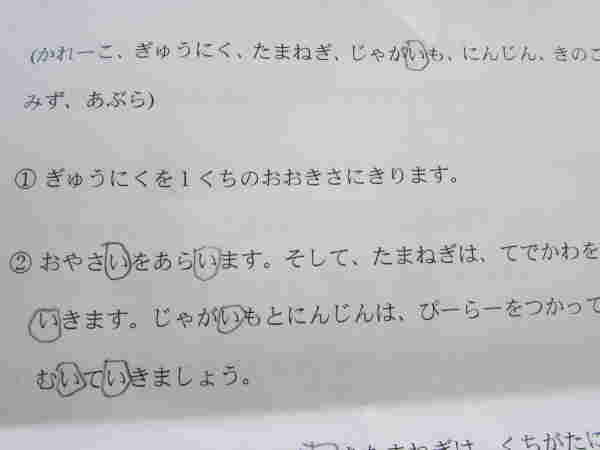 (かれーこ、ぎゅうにく、たまねぎ、じゃがいも、にんじん、きのこ
みず、あぶら)
① ぎゅうにくを１くちのおおきさにきります。
② おやさいをあらいます。そして、たまねぎは、てでかわを
いきます。じゃがいもとにんじんは、ぴーらーをつかって
むいていきましょう。
たまねぎは、くちがたに